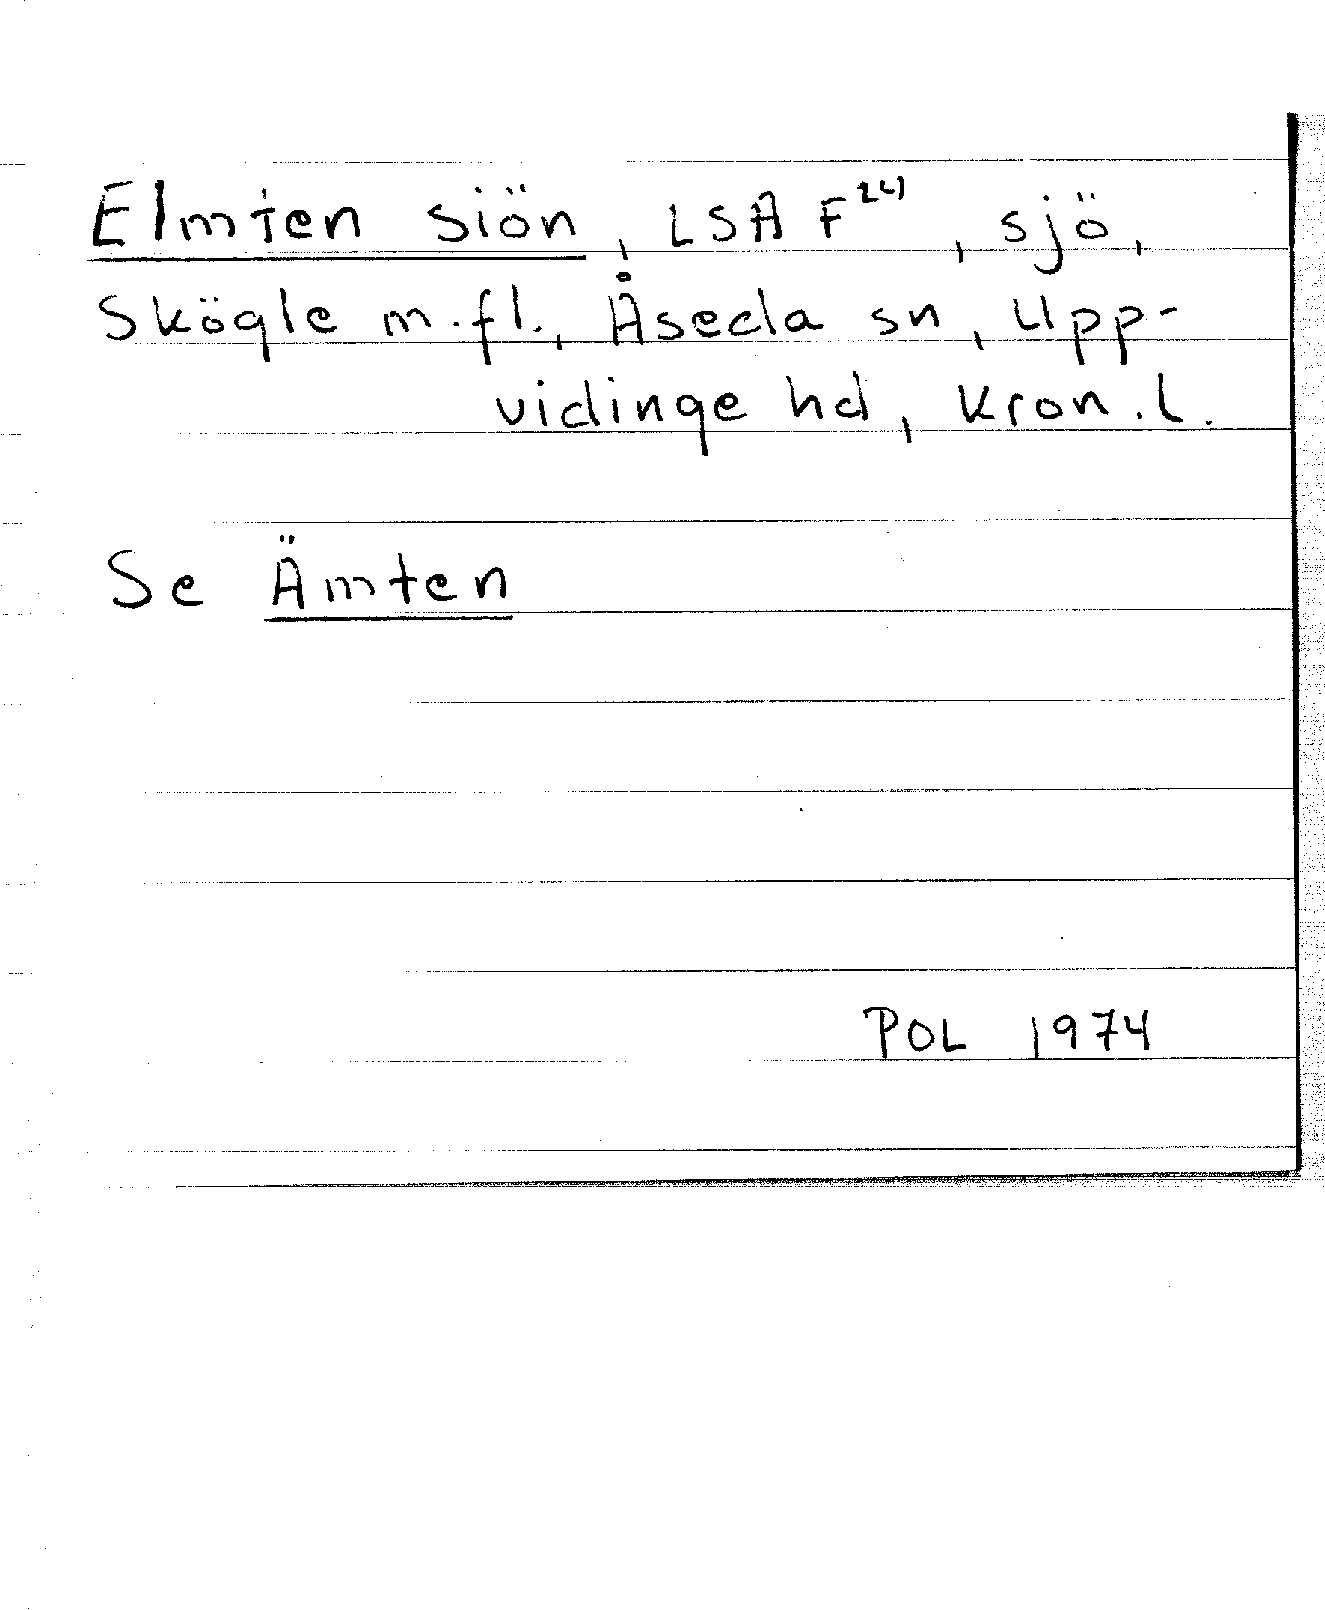 Elmten siön, LSA F²⁴, sjö,
Skögle m.fl., Åseda sn, Upp-
vidinge hd, Kron.l.
Se Ämten
POL 1974